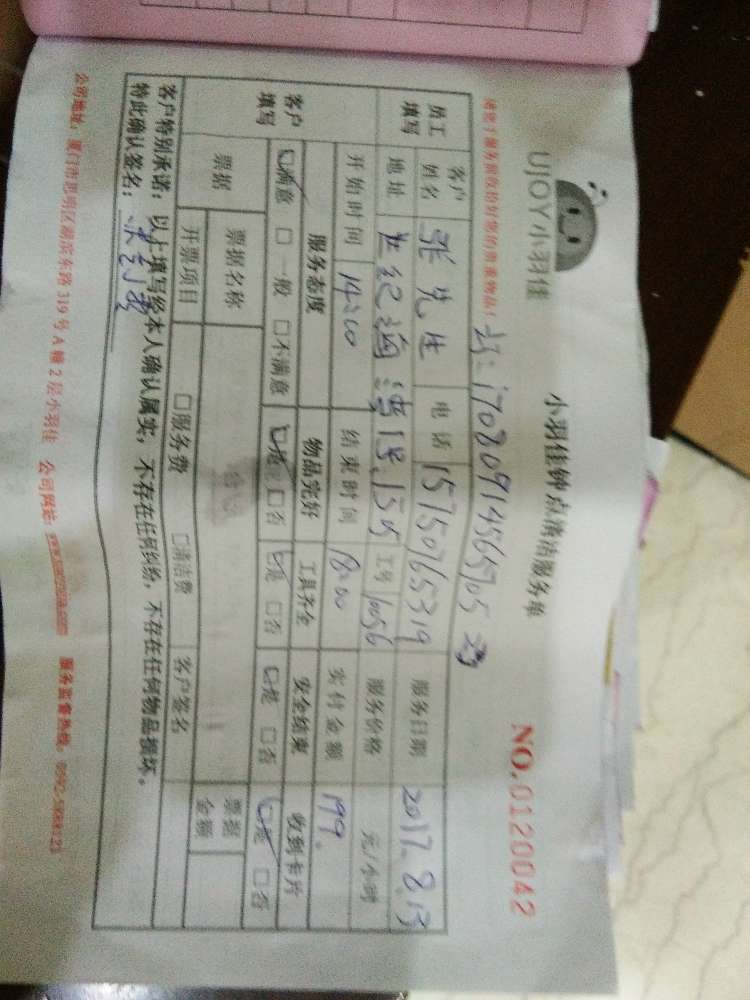 UJOY小羽佳
小羽佳钟点清洁服务单
NO.0120042
17080914565705
员工填写
客户姓名 张先生 电话 15750765319 服务日期 2017.8.13
地址 世纪 工号 1056 服务价格 元/小时
开始时间 14:00 结束时间 18:00 实付金额 199.
客户填写
服务态度 物品完好 工具齐全 安全结束 收到卡片
☑满意 □一般 □不满意 ☑是 □否 ☑是 □否 ☑是 □否 ☑是 □否
票据 票据名称 票据金额
开票项目 □服务费 □清洁费 客户签名
客户特别承诺：以上填写经本人确认属实，不存在任何纠纷，不存在任何物品损坏。
特此确认签名：
公司地址：厦门市思明区湖滨东路319号A幢2层小羽佳 公司网站: www.xiaoyujia.com 服务监督热线: